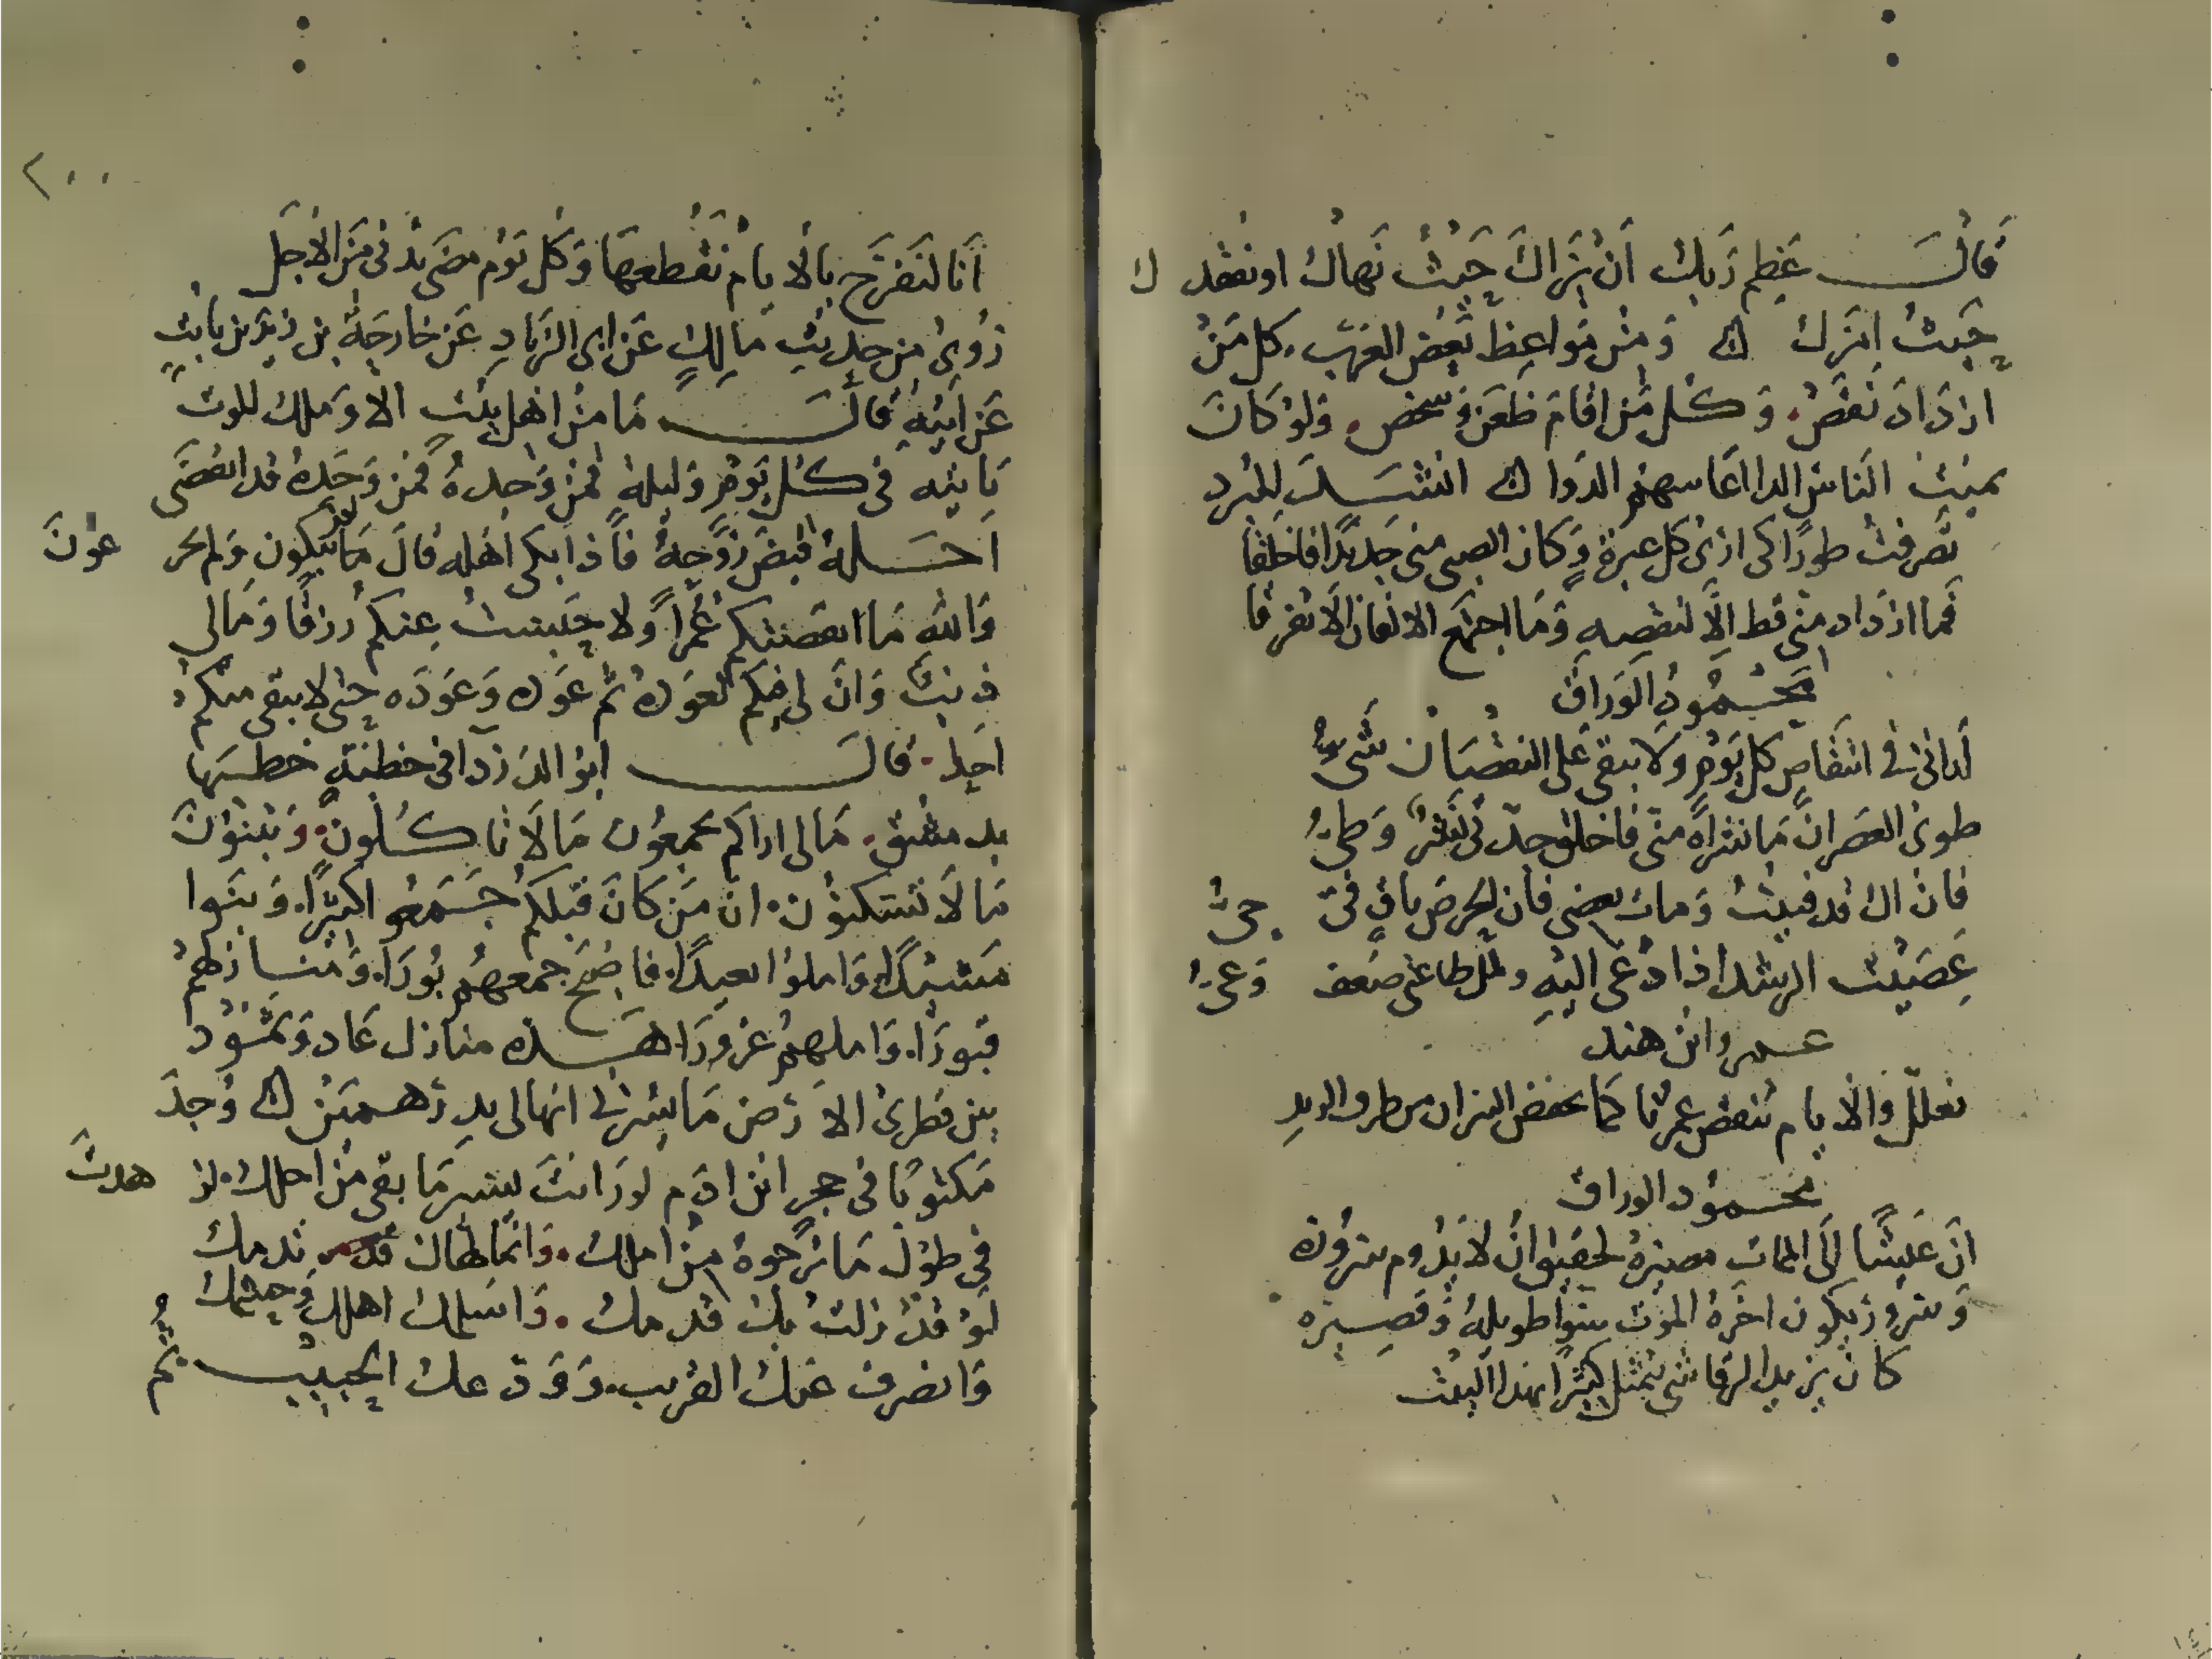 قالــــ عظم ربك ان يراك حيث نهاك او يفقدك
حيث امرك ومن مواعظ بعض العرب. كل من
ازداد نقص. وكل من اقام ظعن وشخص. ولو كان
يميت الناس الدا اعاشهم الدوا انشــد المبرد
تصرفت طورا كى ارى كل عبرة وكان الصبى منى جديدا فاخلقا
فما ازداد منى قط الا لنقصه وما اجتمع الالفان الا تفرقا
محمود الوراق
ارانى فى انتقاص كل يوم ولا يبقى على النقصان شىء
طوى العصران ما نشراه منى فاخلق جدتى نشر وطى
فان اك قد فنيت ومات بعضى فان الحرص باق فى حى
عصيت الرشد اذ ادعى اليه وطاعنى ضعف وعى
عمرو ابن هند
تعلل والايام تنقص عمرنا كما تنقص النيران من طرف الزند
محمود الوراق
ان عيشا الى الممات مصيره لحقيق ان لا يدوم سروره
وسرور يكون اخره الموت سوا طويله وقصيره
كان يزيد الرقاشى يتمثل كثيرا بهذا البيت
٢٠٠
انا لنفرح بالايام نقطعها وكل يوم مضى يدنى من الاجل
روى من حديث مالك عن ابى الزناد عن خارجة بن زيد بن ثابت
عن ابيه قالـــ ما من اهل بيت الا وملك الموت
ياتيه فى كل يوم وليلة فمن وجده قد انقضى
اجــله قبض روحه فاذا بكى اهله قال ما تبكون ولم تجزعون
والله ما انقصتكم عمرا ولا حبست عنكم رزقا ومالى
ذنب وان لى فيكم لعودة ثم عودة وعوده حتى لا يبقى منكم
احد. قالــــ ابو الدردا فى خطبة خطبها
بدمشق. مالى اراكم تجمعون ما لا تاكلون. وتبنون
ما لا تسكنون. ان من كان قبلكم جــمعو اكثيرا. وبنوا
مشيدا. واملوا بعيدا. فاصبح جمعهم بورا. ومنازلهم
قبورا. واملهم غرورا. هــذه منازل عاد وثمود
بين بصرى الارض ما يشرانى انها لى بدرهمين وجد
مكتوبا فى حجر ابن ادم لو رايت يسير ما بقى من اجلك. لزهدت
فى طول ما ترجوه من املك. وانما يلقاك قد ندمك
لو قد زلت بك قدمك. واسلمك اهلك وحشمك
وانصرف عنك القريب. وودعك الحبيبــ ثم